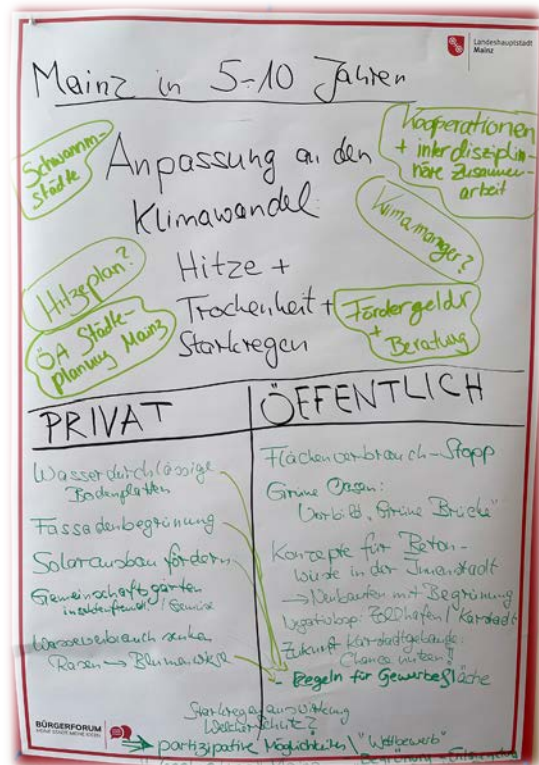 Landeshauptstadt
Mainz
Mainz in 5-10 Jahren
Schwamm-
städte
Anpassung an den
Klimawandel:
Hitze +
Trockenheit +
Starkregen
Kooperationen
+ interdisziplin-
näre Zusammen-
arbeit
Klimamanager?
Hitzeplan?
ÖA Städte-
planung Mainz
Fördergelder
+ Beratung
PRIVAT
Wasserdurchlässige
Bodenplatten
Fassadenbegrünung
Solarausbau fördern
Gemeinschaftsgärten
insektenfreundl. / Gemüse
Wasserverbrauch senken
Rasen → Blumenwiese
ÖFFENTLICH
Flächenverbrauch-Stopp
Grüne Oasen:
Vorbild "Grüne Brücke"
Konzepte für Beton-
wüste in der Innenstadt
→ Neubauten mit Begrünung
Zollhafen / Karstadt
Zukunft Karstadtgebäude:
Chance nutzen!
- Regeln für Gewerbefläche
Starkregenauswirkung
Welcher Schutz?
→ partizipative Möglichkeiten / "Wettbewerb"
BÜRGERFORUM